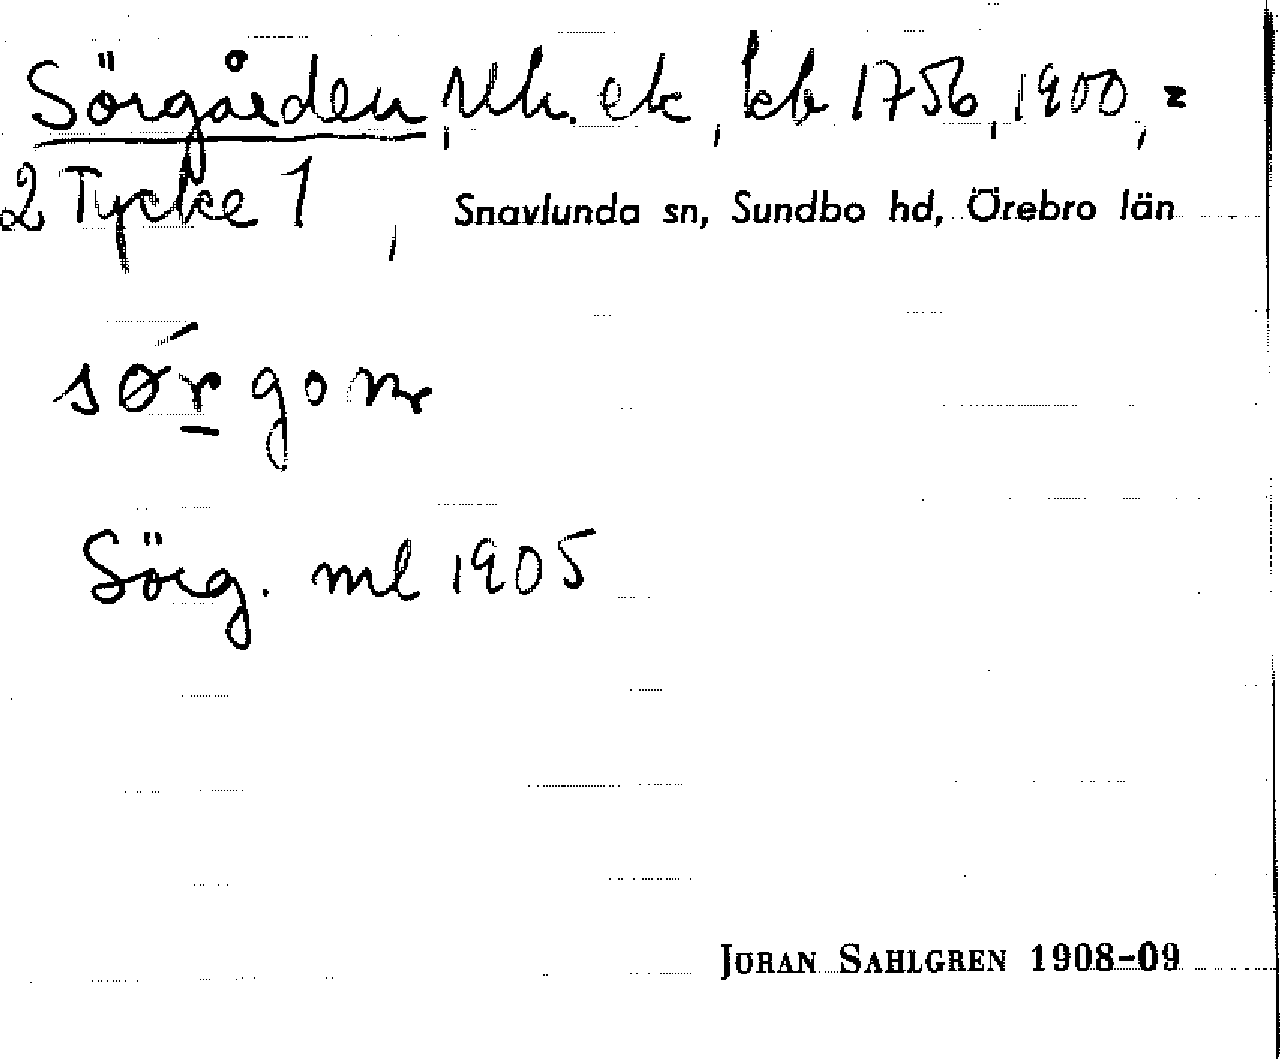 Sörgården, Uh. ek, kb 1756, 1900, =
2 Tycke 1, Snavlunda sn, Sundbo hd, Örebro län
sǿr̲gonr
Sörg. ml 1905
JÖRAN SAHLGREN 1908-09